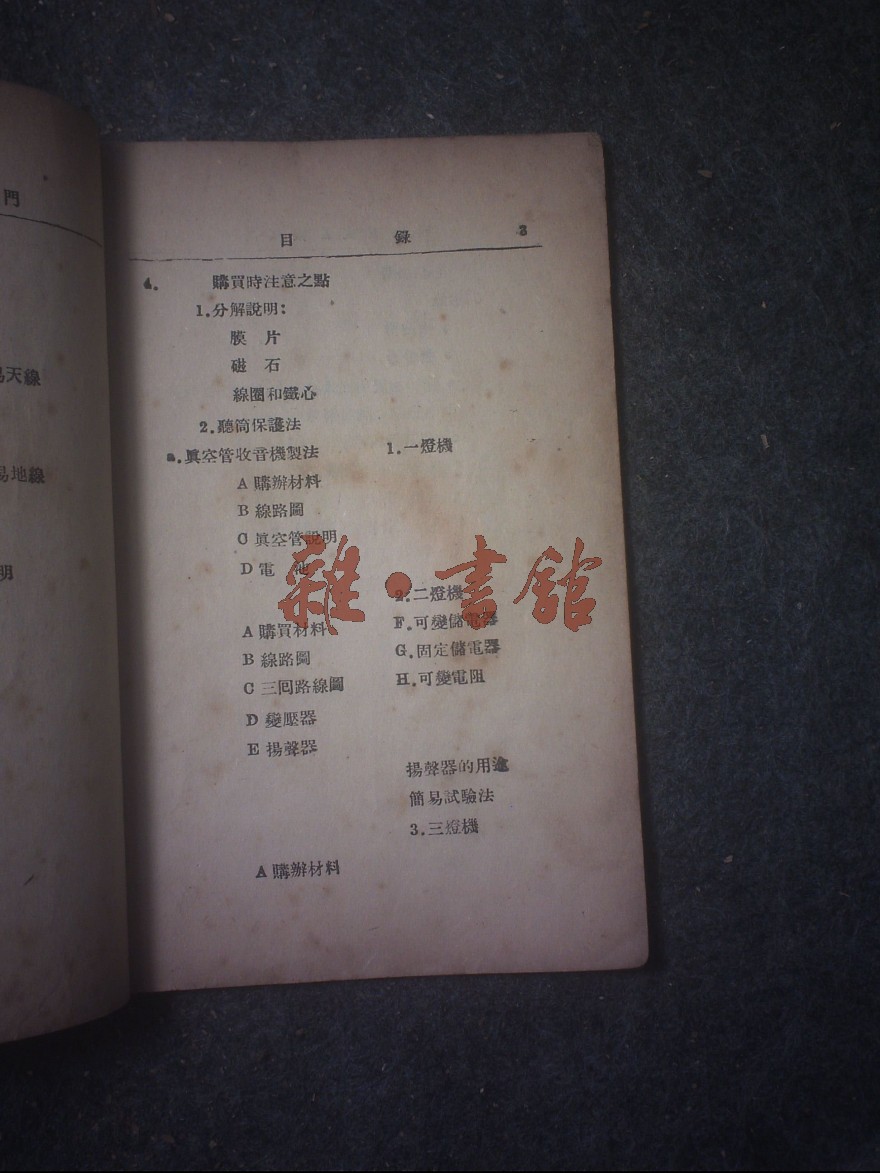 門
易天線
易地線
明
目 錄 3
4. 購買時注意之點
1.分解說明:
膜 片
磁 石
線圈和鐵心
2.聽筒保護法
a.眞空管收音機製法 1.一燈機
A 購辦材料
B 線路圖
C 眞空管說明
D 電 池
2.二燈機
A 購買材料 F.可變儲電器
B 線路圖 G.固定儲電器
C 三回路線圖 H.可變電阻
D 變壓器
E 揚聲器
揚聲器的用途
簡易試驗法
3.三燈機
A 購辦材料
雜·書館